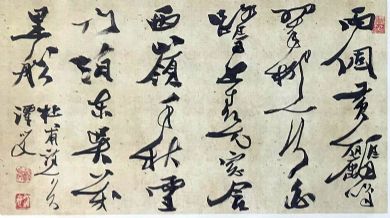 兩個黃鸝鳴
翠柳一行白
鷺上青天窗含
西嶺千秋雪
門泊東吳萬
里船
杜甫